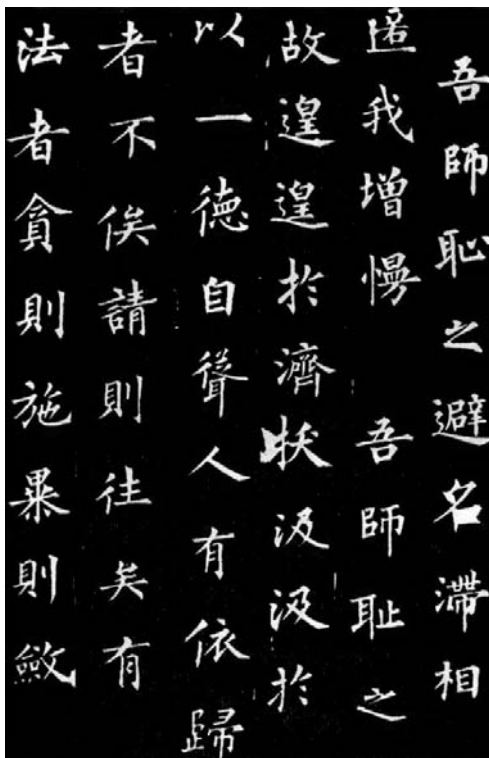 吾師恥之避名滯相
匿我增慢　吾師耻之
故遑遑於濟拔汲汲於
以一德自聳人有依歸
者不俟請則往矣有
法者貪則施暴則斂